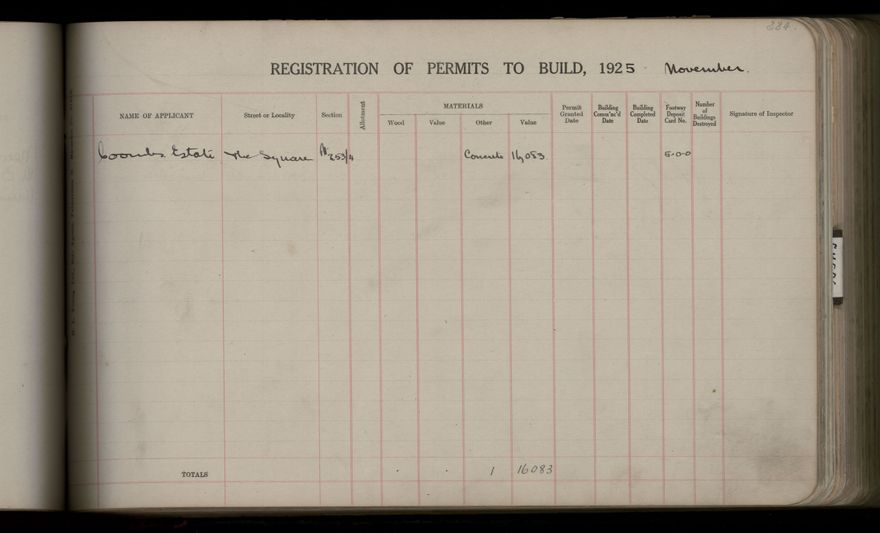 284.
REGISTRATION OF PERMITS TO BUILD, 1925 November.
NAME OF APPLICANT Street or Locality Section Allotment MATERIALS Wood Value Other Value Permit Granted Date Building Comm'nc'd Date Building Completed Date Footway Deposit Card No. Number of Buildings Destroyed Signature of Inspector
Coombs Estate The Square Pt 253/4 Concrete 16,083 5-0-0
TOTALS 1 16083